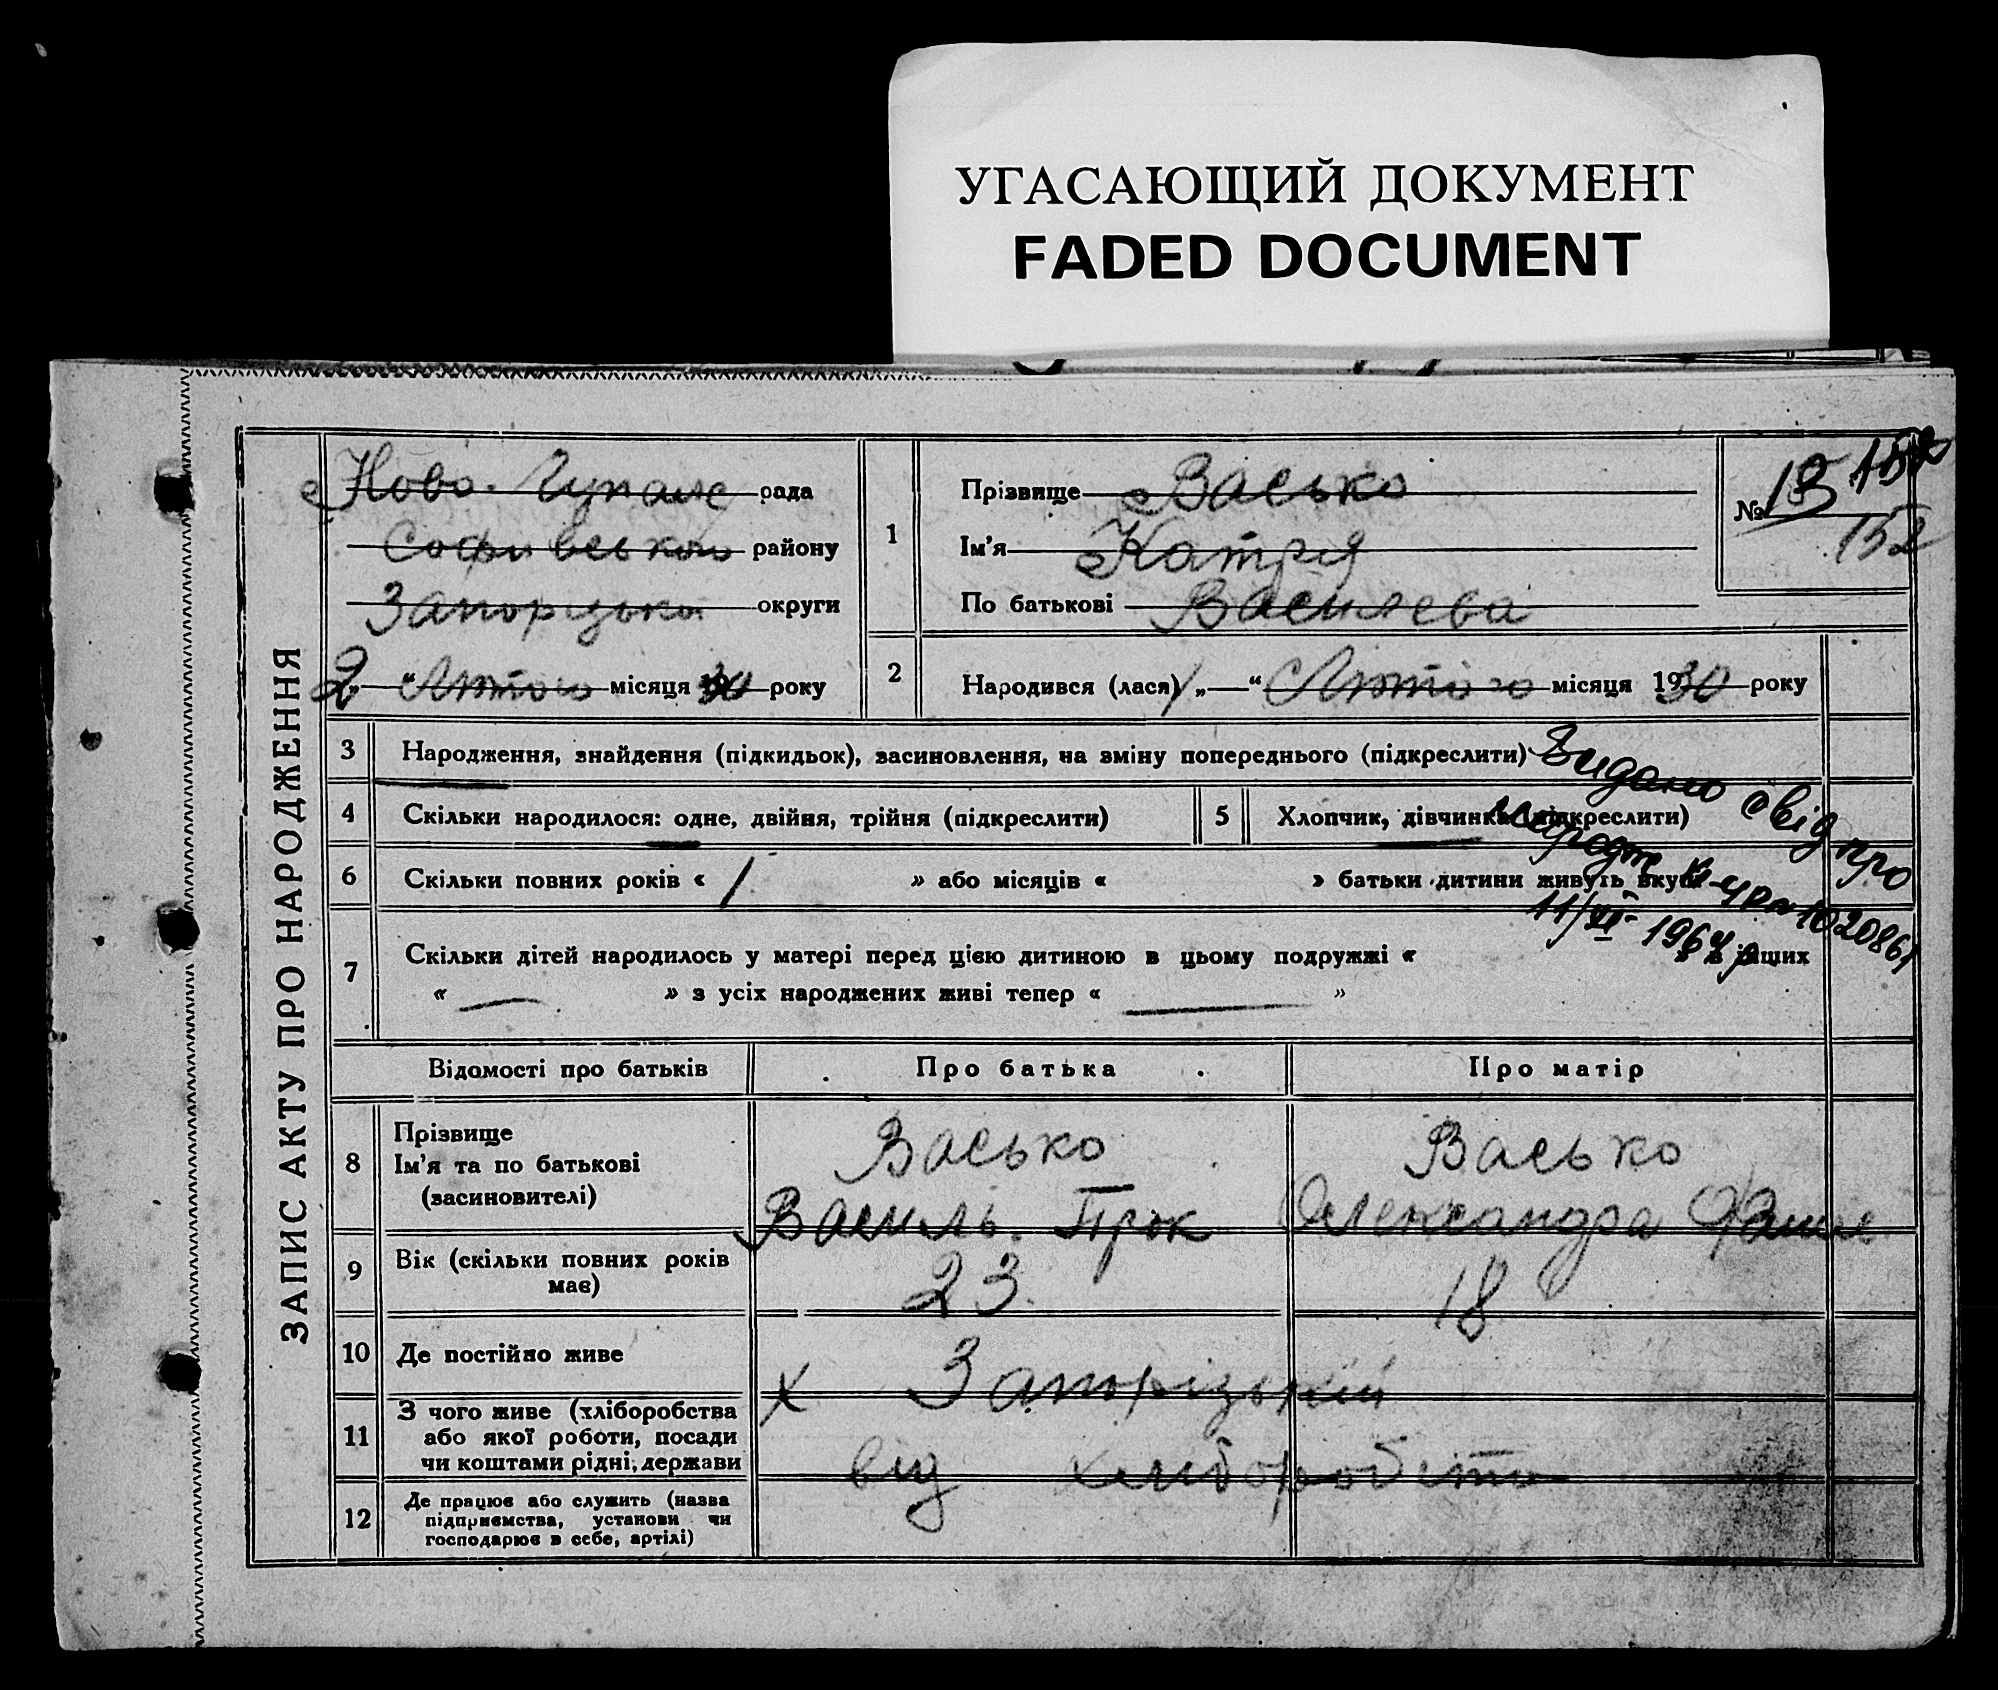 УГАСАЮЩИЙ ДОКУМЕНТ
FADED DOCUMENT
ЗАПИС АКТУ ПРО НАРОДЖЕННЯ
Ново рада
Софиівського району
Запорізької округи
2 „ “ Лютого місяця 1930 року
1
Прізвище Васько
Ім'я Катря
По батькові Василева
№ 13 152
152
2 Народився (лася) 1 „ “ Лютого місяця 1930 року
3 Народження, знайдення (підкидьок), засиновлення, на зміну попереднього (підкреслити)
4 Скільки народилося: одне, двійня, трійня (підкреслити)
5 Хлопчик, дівчинка (підкреслити)
6 Скільки повних років « 1 » або місяців « » батьки дитини живуть вкупі
Видано свід про
народж
11/VI 1964 р.
7 Скільки дітей народилось у матері перед цією дитиною в цьому подружжі « в інших
« — » з усіх народжених живі тепер « — »
Відомості про батьків Про батька Про матір
8 Прізвище
Ім'я та по батькові
(засиновителі)
Васько
Василь Прок
Васько
Олександра
9 Вік (скільки повних років
має)
23
18
10 Де постійно живе
х Запорізькій
11 З чого живе (хліборобства
або якої роботи, посади
чи коштами рідні, держави
від хліборобіт
12 Де працює або служить (назва
підприємства, установи чи
господарює в себе, артілі)